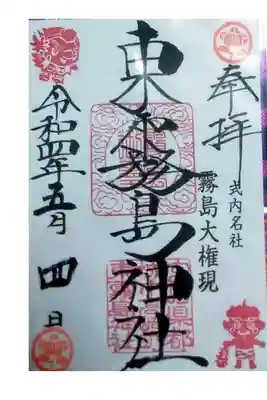 奉拝
式内名社
霧島大権現
東霧島神社
令和四年五月四日